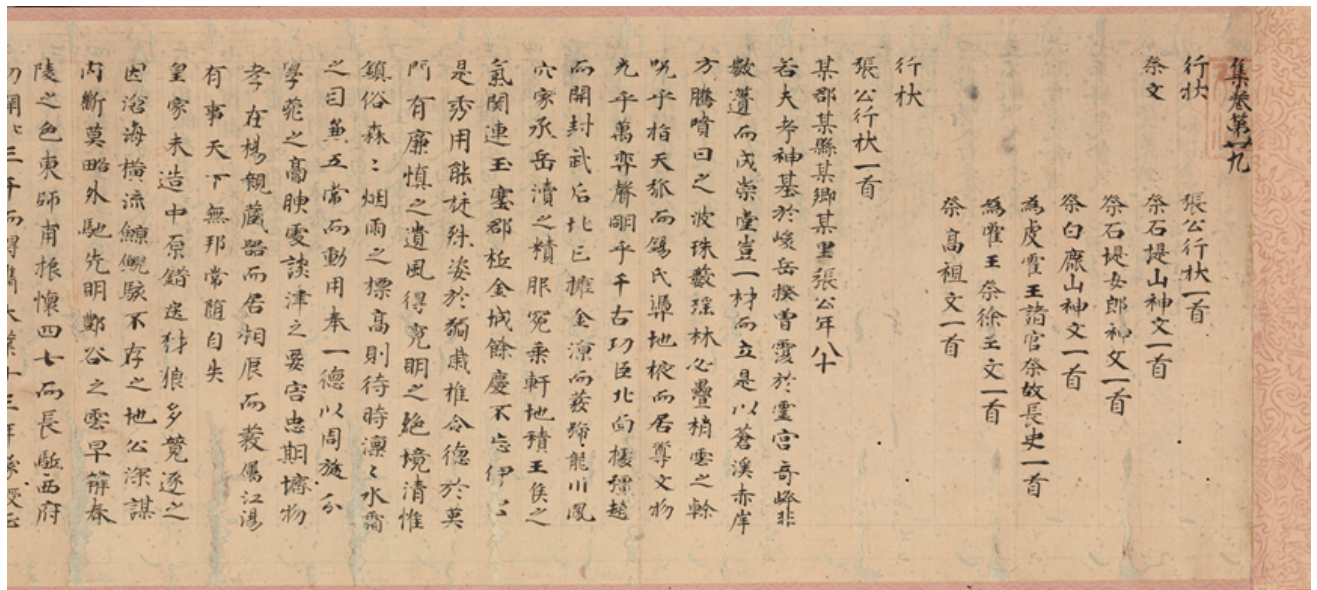 集卷第廿九
行狀　張公行狀一首
祭文　祭石堤山神文一首
祭石堤女郎神文一首
祭白鹿山神文一首
為虔霍王諸官祭故長史一首
為霍王祭徐王文一首
祭高祖文一首
行狀
張公行狀一首
某郡某縣某鄉某里張公年八十
若夫考神基於峻岳揆曾靈於靈宮奇峰非
數簣而成崇堂豈一材而立是以蒼溪赤岸
方騰噴日之波珠藪瑤林必疊梢雲之幹
況乎指天弧而錫氏蹕地棭而居尊文物
光乎萬弈聲明乎千古功臣北面榎彊趙
而開封武后北巳擁金涼而發跡龍川鳳
穴家承岳瀆之精服冕乘軒地積王侯之
氣關連玉塞郡枕金城餘慶不忘伊公
是秀用能旋殊姿於獨肅推令德於
門有廉慎之遺風得寬明之絕境清惟
鎮俗森〻烟雨之標高則待時凜〻水霜
之日兼五常而動用奉一德以周旋
學苑之高腴受談津之要害忠期
孝在楊親藏器而居相展而發屬江湯
有事天下無邦常隨自失
皇家未造中原錯逆豺狼多競逐之
因滄海橫流鯨鯢駭不存之地公深謀
內斷莫略外馳先明鄭谷之雲早辯春
陵之色東師甫振懷四七而長駈西府